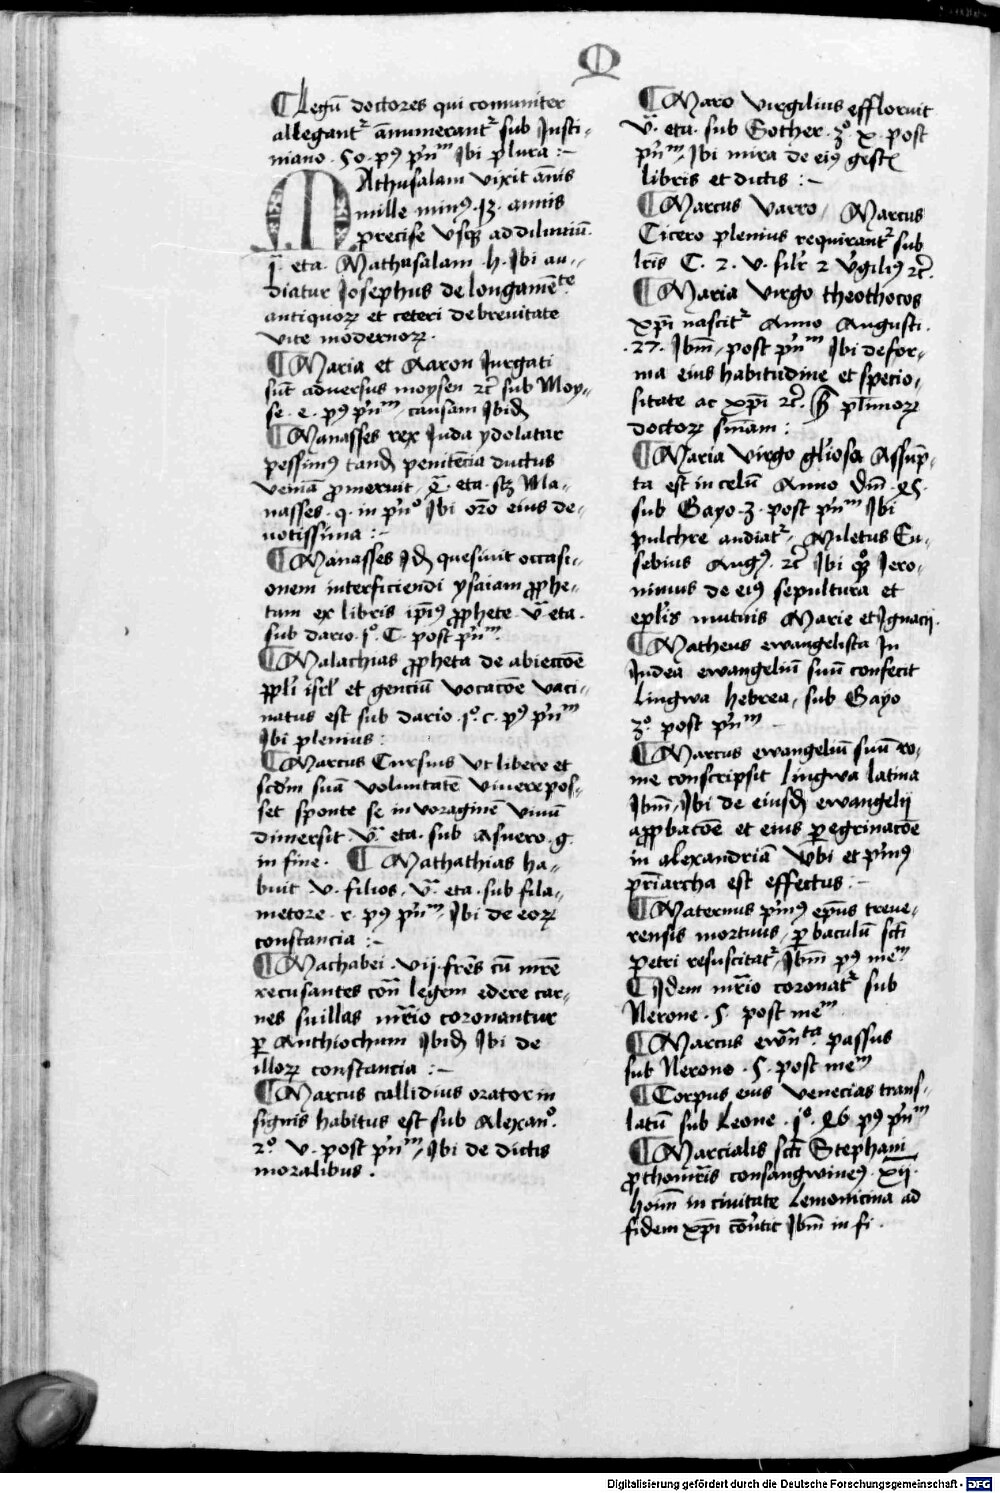 M
¶ Legū doctores qui comuniter
allegantᷣ ānumerantᷣ sub Justi-
niano · 50 · pꝰ pn̄m Ibi plura :~
MAthusalam vixit ānis
mille minꝰ · 31 · annis
precise vsqꝫ ad diluuiū ·
eta · Mathusalam · h · Ibi au-
diatur Josephus de longamēte
antiquoꝝ et ceteri de breuitate
vite modernoꝝ ·
¶ Maria et Aaron Jurgati
sūt aduersus moysen ⁊c̄ sub Moy-
se · e · pꝰ pn̄m, causam Ibid̄
¶ Manasses rex Iuda ydolatar
pessimꝰ tand̄ penitēcia ductus
veniā ꝓmeruit, eta · Ma-
nasses · q · in pn̄º Ibi or̄o eius de-
uotissima :~
¶ Manasses Id̄ quesiuit occasi-
onem interficiendi ysaiam ꝓphe-
tam ex libris ip̄iꝰ ꝓphete · v̄ eta ·
sub dario · 1º · C · post pn̄m ·
¶ Malachias ꝓpheta de abieccōe
ppl̄i isrl̄ et genciū vocacōe vaci-
natus est sub dario · 1º · c · pꝰ pn̄m
Ibi plenius :
¶ Marcus Cursius vt libere et
scd̄m suā voluntatē viuere pos-
set sponte se in voraginē viuū
dimersit · v̄ eta · sub Asuero · g ·
in fine · ¶ Mathathias ha-
buit · v · filios, v̄ eta · sub fila-
metore · r · pꝰ pn̄m, Ibi de eoꝝ
constancia :~
¶ Machabei · vij · frēs cū mr̄e
recusantes con̄ legem edere car-
nes suillas mr̄io coronantur
ꝑ Anthiochum Ibid̄ Ibi de
illoꝝ constancia :~
¶ Marcus callidius orator in
signis habitus est sub Alexanº ·
2º · v · post pn̄m, Ibi de dictis
moralibus ·
¶ Maro Virgilius effloruit
v̄ · eta · sub Gother · 3º · x · post
pn̄m, Ibi mira de eiꝰ gestꝭ
libris et dictis :~
¶ Marcus Varro, Marcus
Cicero plenius requirantᷣ sub
lr̄is C · 2 · V · silr̄ 2 v̓giliꝰ ⁊c̄ ·
¶ Maria Virgo theothocos
xp̄i nascitᷣ Anno Augusti ·
· 27 · Ibm̄, post pn̄m Ibi de for-
ma eius habitudine et specio-
sitate ac xp̄i ⁊c̄ · plimoꝝ
doctoꝝ sm̄am :
¶ Maria Virgo gl̄iosa Assūp-
ta est in celū Anno dn̄i · 45 ·
sub Gayo · 3 · post pn̄m Ibi
pulchre audiatᷣ, Miletus Eu-
sebius Augꝰ · ⁊c̄ Ibi Jero-
nimus de eiꝰ sepultura et
epl̄is mutuis Marie et Ignacij ·
¶ Matheus ewangelista In
Iudea ewangeliū suū confecit
Lingwa hebrea, sub Gayo
3º · post pn̄m ·
¶ Marcus ewangeliū suū ro-
me conscripsit Lingwa latina
Ibm̄, Ibi de eiusd̄ ewangelij
aꝓbacōe et eius ꝑegrinacōe
in alexandriā Vbi et pi̓mꝰ
pr̄iarcha est effectus :~
¶ Maternus pi̓mꝰ ep̄us treue-
rensis mortuus, ꝑ baculū sc̄ti
petri resuscitatᷣ, Ibm̄ pꝰ mem
¶ Idem mr̄io coronatᷣ sub
Nerone · 5 · post mem
¶ Marcus ewn̄ta · passus
sub Nerone · 5 · post mem
¶ Corpus eius Venecias trans-
latū sub Leone · 1º · 46 pꝰ pn̄m
¶ Marcialis sc̄ti Stephani
ꝓthomr̄is consangwineꝰ · xij ·
hoīm in ciuitate Lemouicina ad
fidem xp̄i cōu̓tit Ibm̄ in fi ·
Digitalisierung gefördert durch die Deutsche Forschungsgemeinschaft - DFG